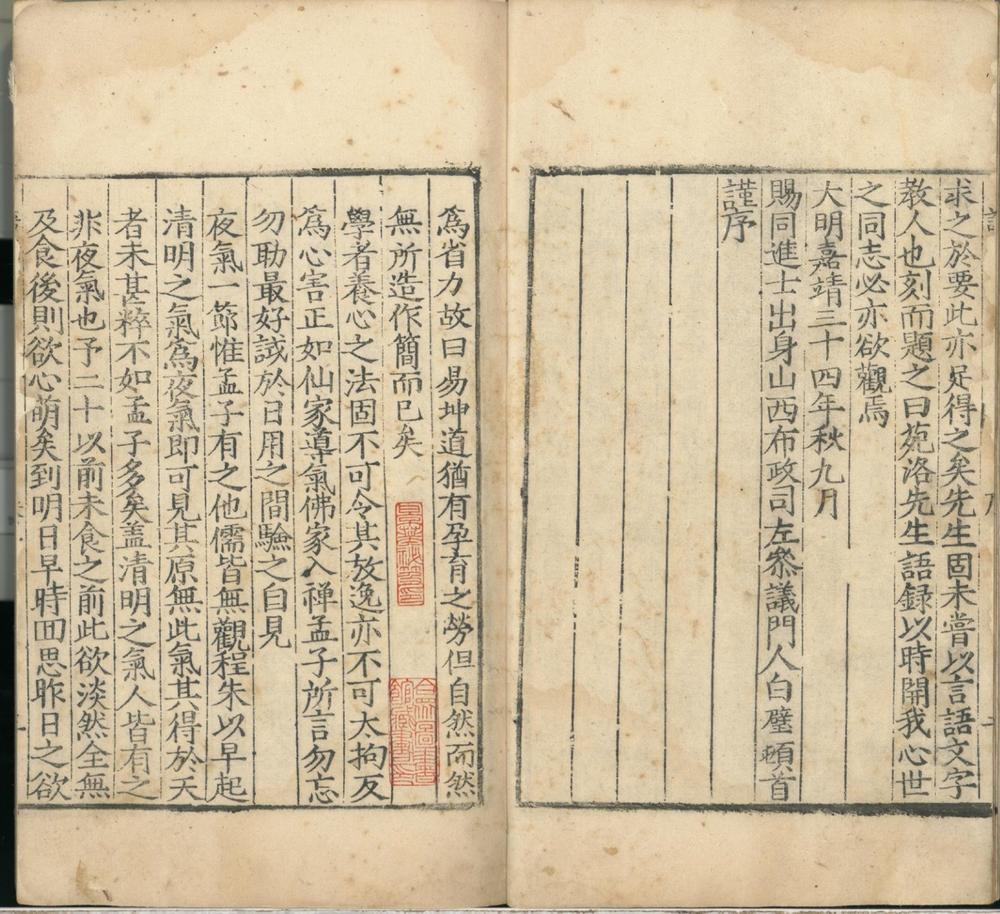 求之於要此亦足得之矣先生固未嘗以言語文字
教人也刻而題之曰苑洛先生語録以時開我心世
之同志必亦欲觀焉
大明嘉靖三十四年秋九月
賜同進士出身山西布政司左叅議門人白璧頓首
謹序
爲省力故曰易坤道猶有孕育之勞但自然而然
無所造作簡而已矣
學者養心之法固不可令其放逸亦不可太拘反
爲心害正如仙家導氣佛家入禅孟子所言勿忘
勿助最好誠於日用之間驗之自見
夜氣一節惟孟子有之他儒皆無觀程朱以早起
清明之氣爲夜氣即可見其原無此氣其得於天
者未甚粹不如孟子多矣盖清明之氣人皆有之
非夜氣也予二十以前未食之前此欲淡然全無
及食後則欲心萌矣到明日早時囬思昨日之欲